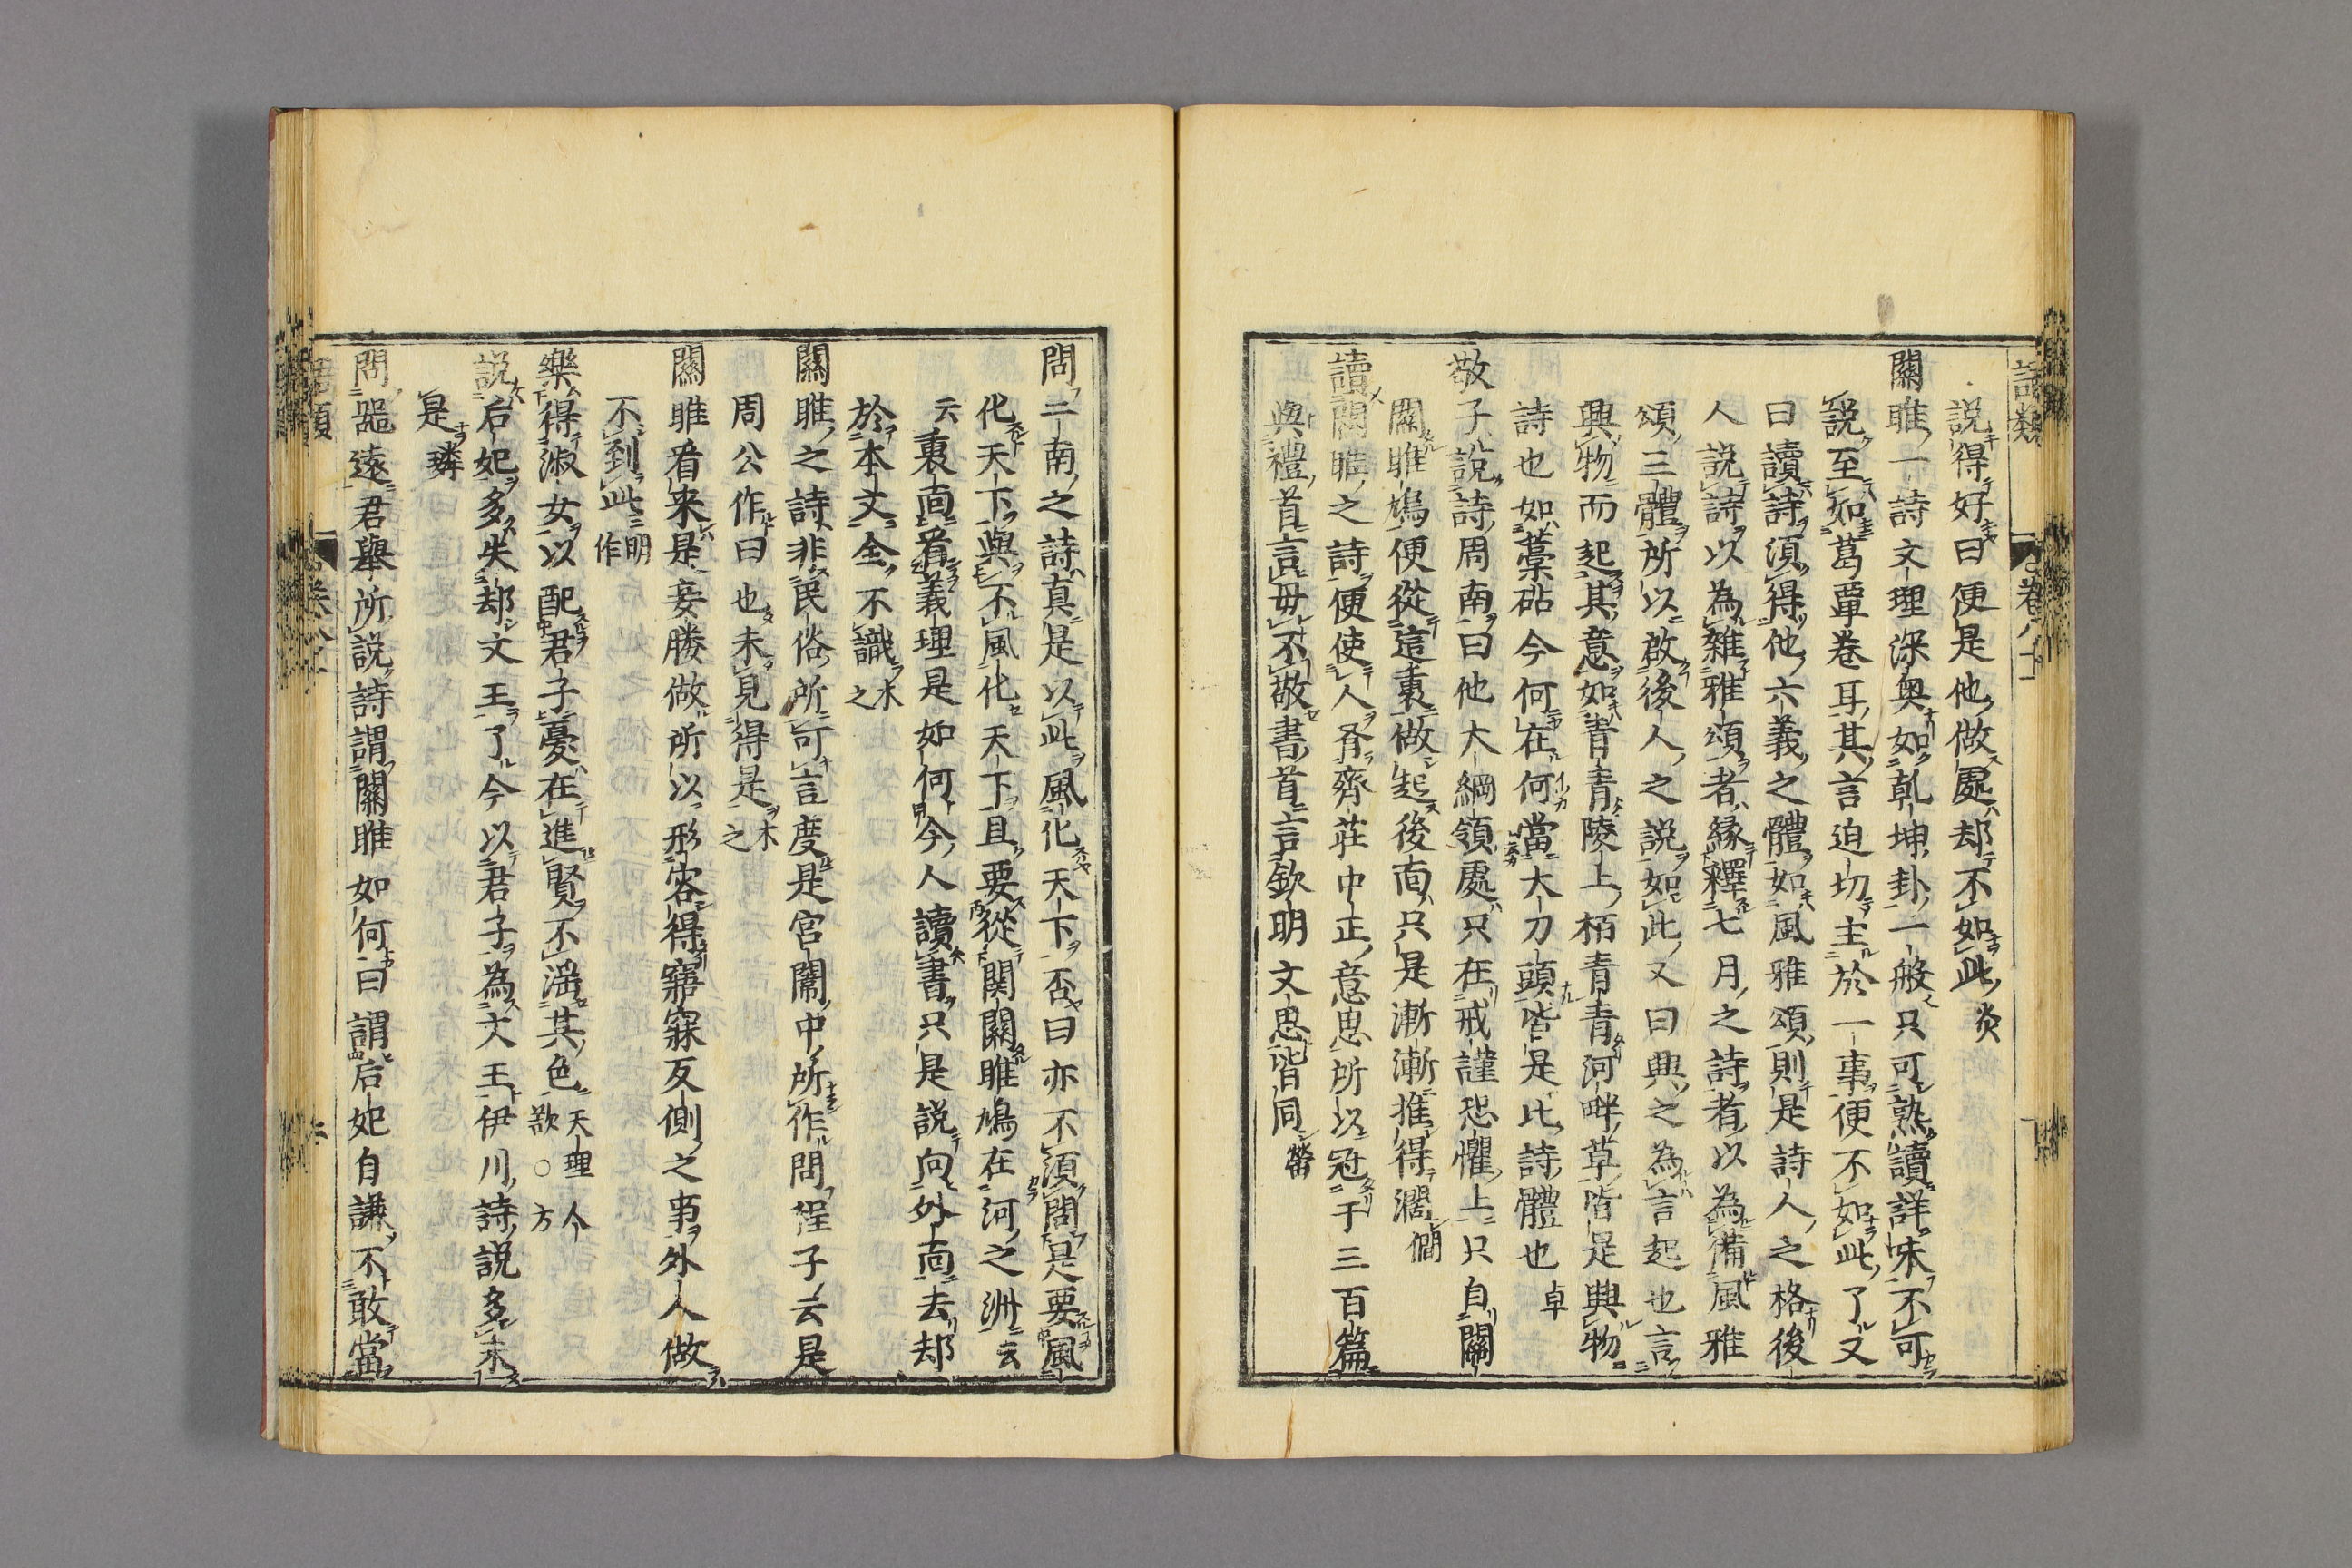 說得好曰便是他做處却不如此炎
關雎一詩文理深奥如乾坤卦一般只可熟讀詳味不可
說至如葛覃卷耳其言迫切主於一事便不如此了又
曰讀詩須得他六義之體如風雅頌則是詩人之格後
人說詩以為雜雅頌者緣釋七月之詩者以為備風雅
頌三體所以啟後人之說如此又曰興之為言起也言
興物而起其意如青青陵上栢青青河畔草皆是興物
詩也如藁砧今何在何當大刀頭皆是比詩體也卓
敬子說詩周南曰他大綱領處只在戒謹恐懼上只自關
關雎鳩便從這裏做起後面只是漸漸推得濶僴
讀關雎之詩便使人有齊莊中正意思所以冠于三百篇
與禮首言毋不敬書首言欽明文思皆同𥳑
問二南之詩真是以此風化天下否曰亦不須問是要風
化天下與不風化天下且要從関關雎鳩在河之洲云
云裏面看義理是如何今人讀書只是說向外面去却
於本文全不識木之
關雎之詩非民俗所可言度是宮闈中所作問程子云是
周公作曰也未見得是木之
關雎看来是妾勝做所以形容得寤寐反側之事外人做
不到此明作
樂得淑女以配君子憂在進賢不淫其色天理人歆○方
說后妃多失却文王了今以君子為文王伊川詩說多未
是璘
問器遠君舉所說詩謂關雎如何曰謂后妃自謙不敢當